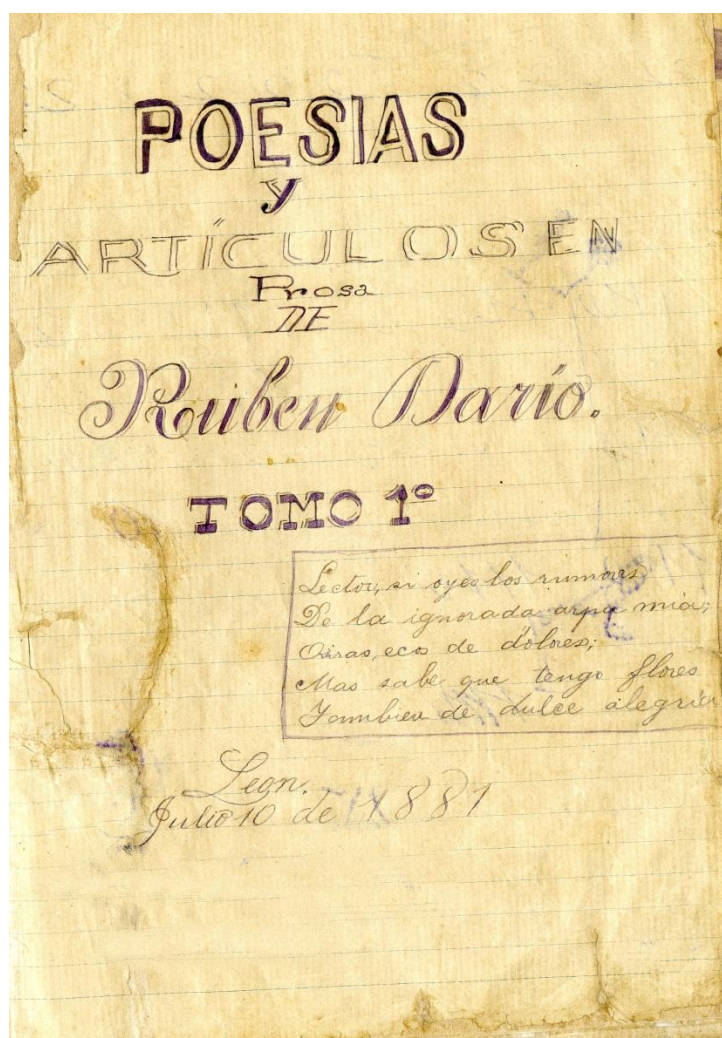 POESIAS
y
ARTÍCULOS EN
Prosa
DE
Ruben Darío.
TOMO 1º
Lector, si oyes los rumores
De la ignorada arpa mia;
Oiras, ecos de dolores;
Mas sabe que tengo flores
Tambien de dulce alegria
Leon.
Julio 10 de 1881